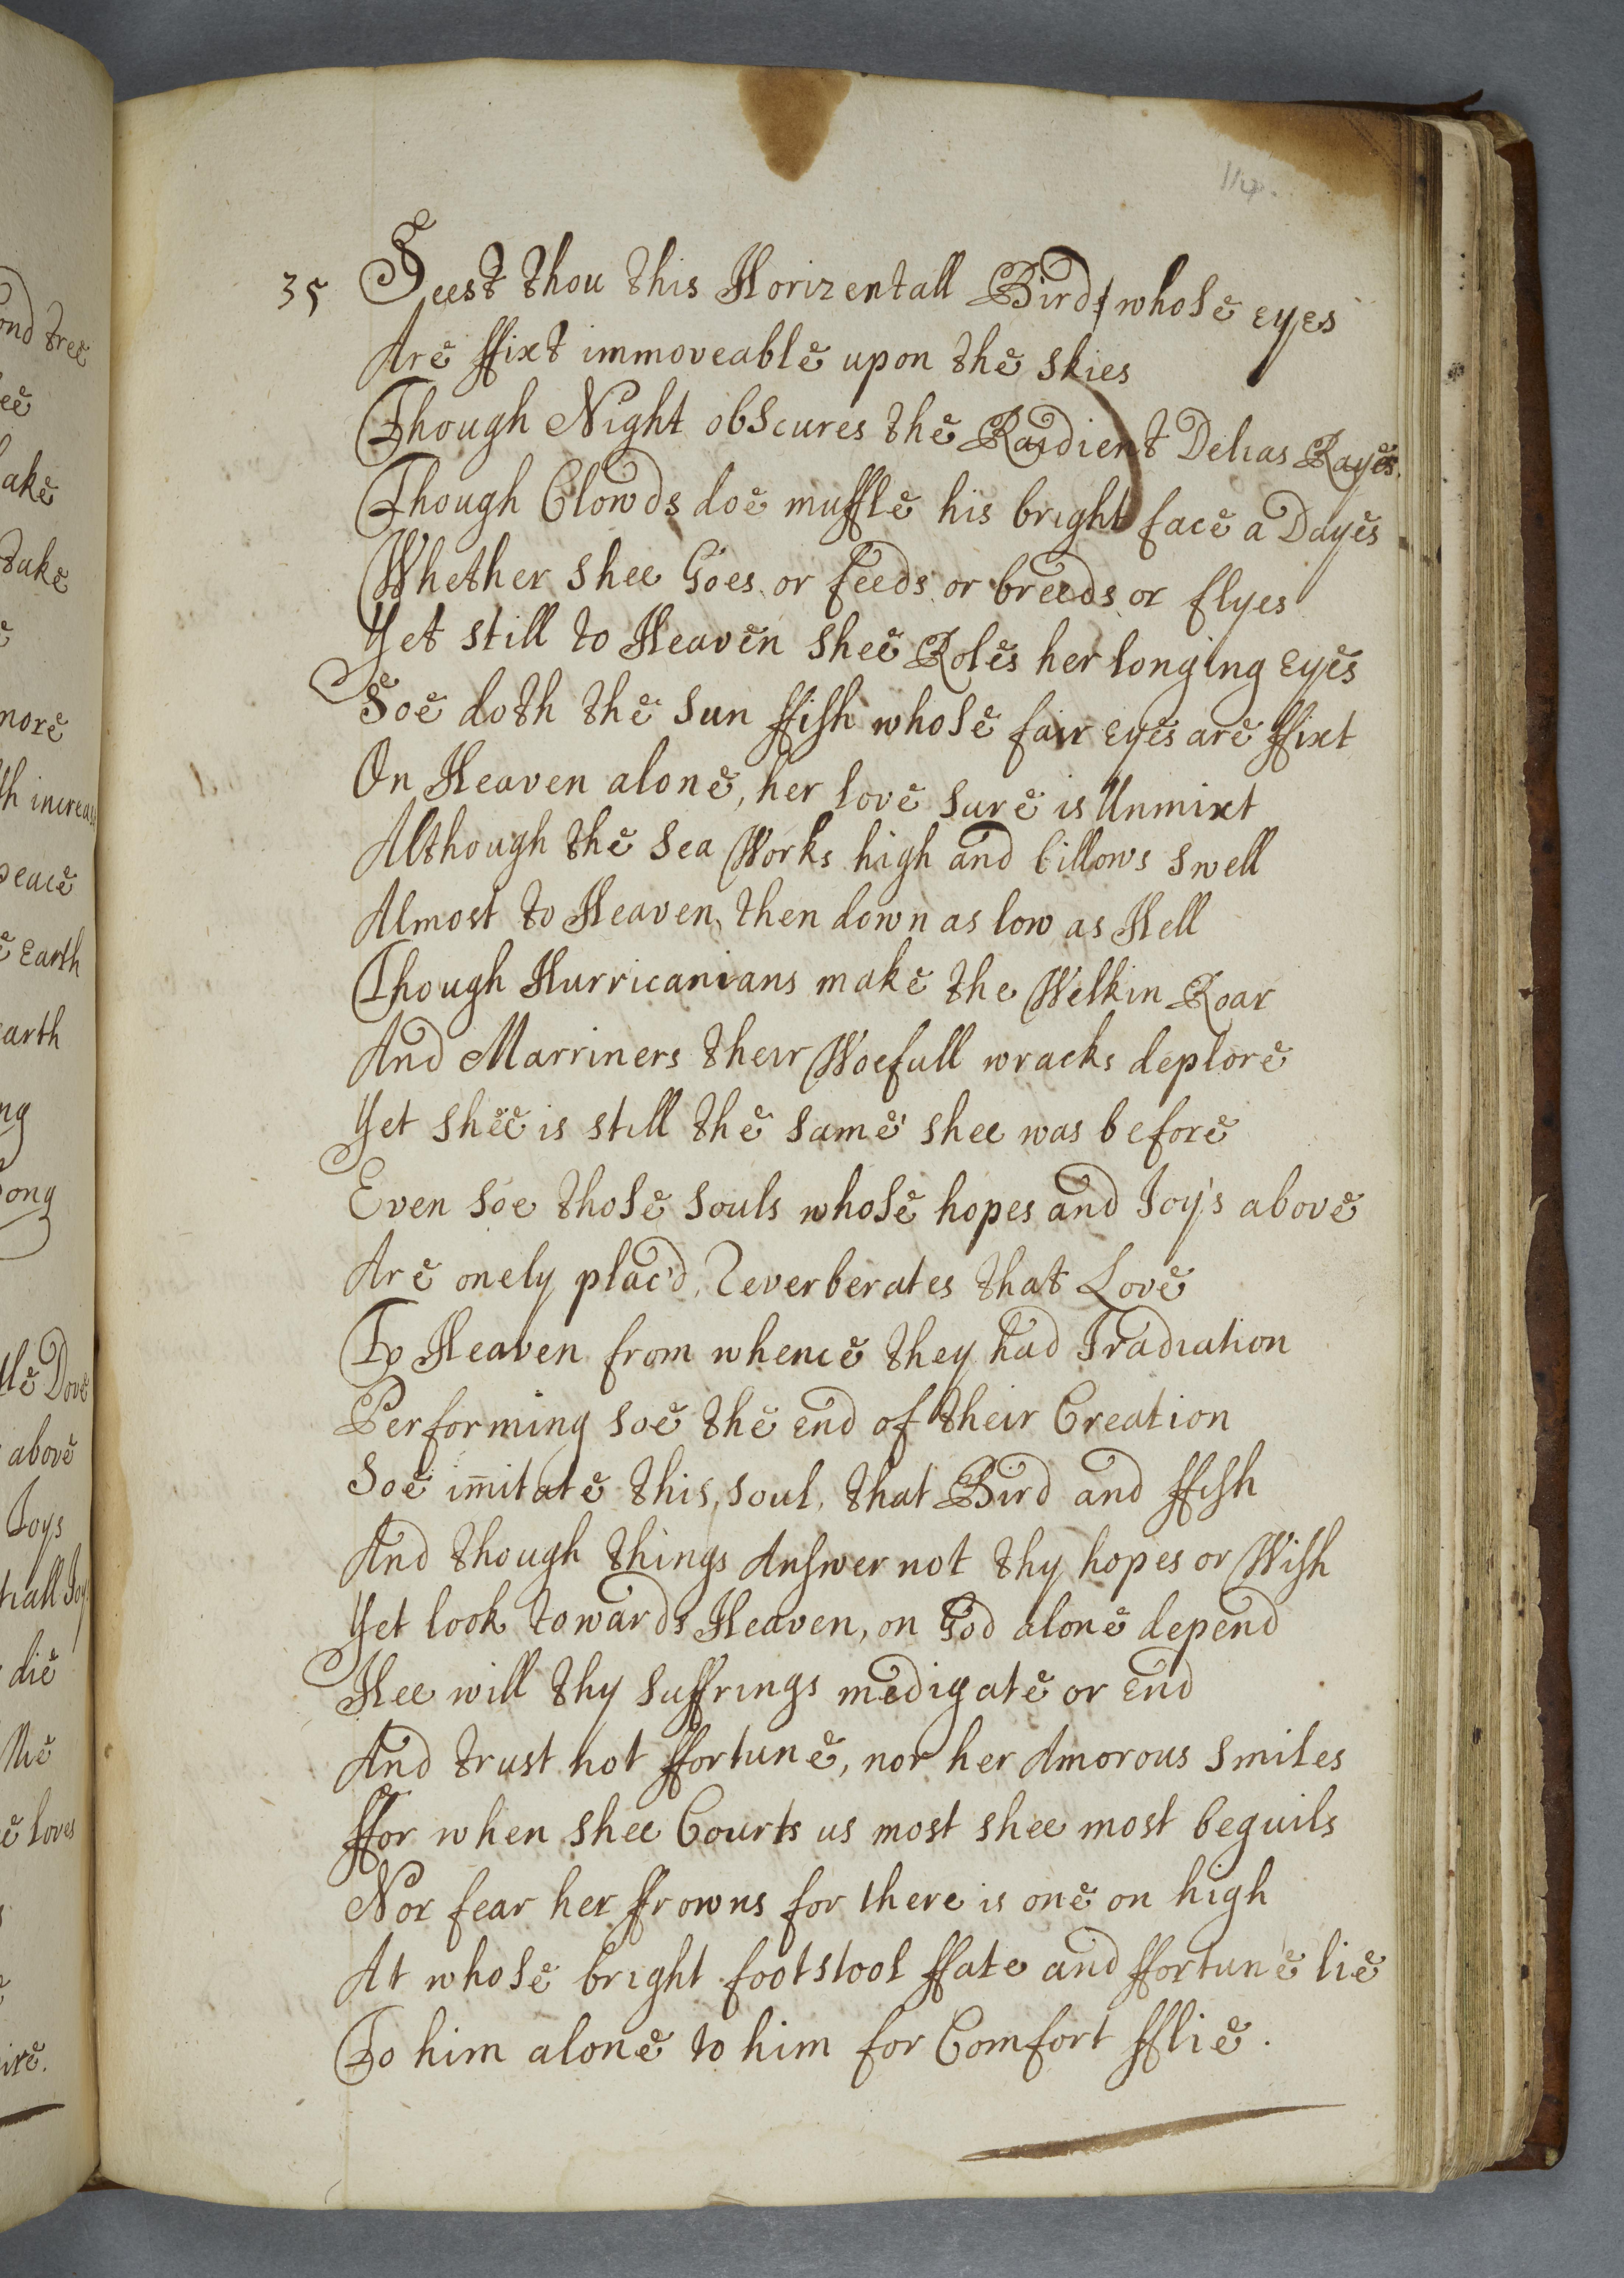 114.
35 Seest thou this Horizentall Bird, whose eyes
Are ffixt immoveable upon the skies
Though Night obscures the Raidient Delias Rayes.
Though Clowds doe muffle his bright face a Dayes
Whether shee Goes or feeds or breeds or flyes
Yet still to Heaven shee Roles her longing eyes
Soe doth the Sun ffish whose fair eyes are ffixt
On Heaven alone, her love sure is Unmixt
Although the Sea Works high and billows swell
Almost to Heaven, then down as low as Hell
Though Hurricanians make the Welkin Roar
And Marriners their Woefull wracks deplore
Yet shee is still the same shee was before
Even soe those souls whose hopes and Joy's above
Are onely plac'd, Reverberates that Love
To Heaven from whence they had Iradiation
Performing soe the end of their Creation
Soe im̅itate this, soul, that Bird and ffish
And though things Answer not thy hopes or Wish
Yet look towards Heaven, on God alone depend
Hee will thy suffrings medigate or end
And trust not ffortune, nor her Amorous smiles
ffor when shee Courts us most shee most beguils
Nor fear her ffrowns for there is one on high
At whose bright footstool ffate and ffortune lie
To him alone to him for Comfort fflie.
ond tree
ake
take
more
th increase
peace
e earth
earth
ng
ong
tle Dove
above
Joys
tiall Joy
die
e loves